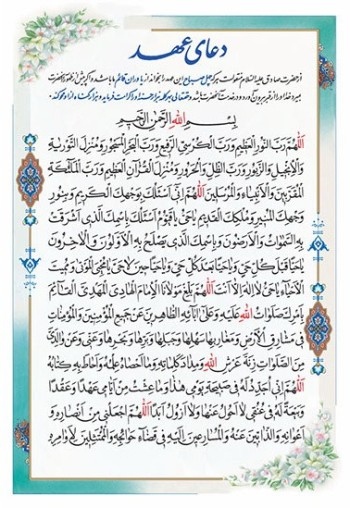 دعای عهد
از حضرت صادق علیه‌السلام منقولست هرکه چهل صباح این عهد را بخواند از یاوران قائم ما باشد و اگر پیش از ظهور آنحضرت
بمیرد خدا او را از قبر بیرون آورد و در خدمت آنحضرت باشد و حقتعالی بهر کلمه هزار حسنه او را کرامت فرماید و هزار گناه از او محو کند.
بِسْمِ اللهِ الرَّحْمٰنِ الرَّحیمِ
اَللّهُمَّ رَبَّ النُّورِ الْعَظیمِ وَرَبَّ الْکُرْسِیِّ الرَّفیعِ وَرَبَّ الْبَحْرِ الْمَسْجُورِ وَمُنْزِلَ التَّوْریةِ
وَالْاِنْجیلِ وَالزَّبُورِ وَرَبَّ الظِّلِّ وَالْحَرُورِ وَمُنْزِلَ الْقُرْآنِ الْعَظیمِ وَرَبَّ الْمَلٰئِکَةِ
الْمُقَرَّبینَ وَالْاَنْبِیآءِ وَالْمُرْسَلینَ اَللّهُمَّ اِنّی اَسْئَلُکَ بِوَجْهِکَ الْکَریمِ وَبِنُورِ
وَجْهِکَ الْمُنیرِ وَمُلْکِکَ الْقَدیمِ یاحَیُّ یاقَیُّومُ اَسْئَلُکَ بِاسْمِکَ الَّذی اَشْرَقَتْ
بِهِ السَّمٰوٰاتُ وَالْاَرَضُونَ وَبِاسْمِکَ الَّذی یَصْلَحُ بِهِ الْاَوَّلُونَ وَالْاٰخِرُونَ
یاحَیّاً قَبْلَ کُلِّ حَیٍّ وَیاحَیّاً بَعْدَ کُلِّ حَیٍّ وَیاحَیّاً حینَ لاحَیَّ یامُحْیِیَ الْمَوْتیٰ وَمُمیتَ
الْاَحْیآءِ یاحَیُّ لااِلٰهَ اِلّا اَنْتَ اَللّهُمَّ بَلِّغْ مَوْلانَا الْاِمامَ الْهادِیَ الْمَهْدِیَّ الْقآئِمَ
بِاَمْرِکَ صَلَواتُ اللهِ عَلَیْهِ وَعَلیٰ اٰبآئِهِ الطّاهِرینَ عَنْ جَمیعِ الْمُؤْمِنینَ وَالْمُؤْمِناتِ
فی مَشارِقِ الْاَرْضِ وَمَغارِبِها سَهْلِها وَجَبَلِها وَبَرِّها وَبَحْرِها وَعَنّی وَعَنْ والِدَیَّ
مِنَ الصَّلَواتِ زِنَةَ عَرْشِ اللهِ وَمِدادَ کَلِماتِهِ وَما اَحْصاهُ عِلْمُهُ وَاَحاطَ بِهِ کِتابُهُ
اَللّهُمَّ اِنّی اُجَدِّدُ لَهُ فی صَبیحَةِ یَوْمی هٰذا وَماعِشْتُ مِنْ اَیّامی عَهْداً وَعَقْداً
وَبَیْعَةً لَهُ فی عُنُقی لااَحُولُ عَنْها وَلااَزُولُ اَبَداً اَللّهُمَّ اجْعَلْنی مِنْ اَنْصارِهِ وَ
اَعْوانِهِ وَالذّابّینَ عَنْهُ وَالْمُسارِعینَ اِلَیْهِ فی قَضآءِ حَوآئِجِهِ وَالْمُمْتَثِلینَ لِاَوامِرِهِ